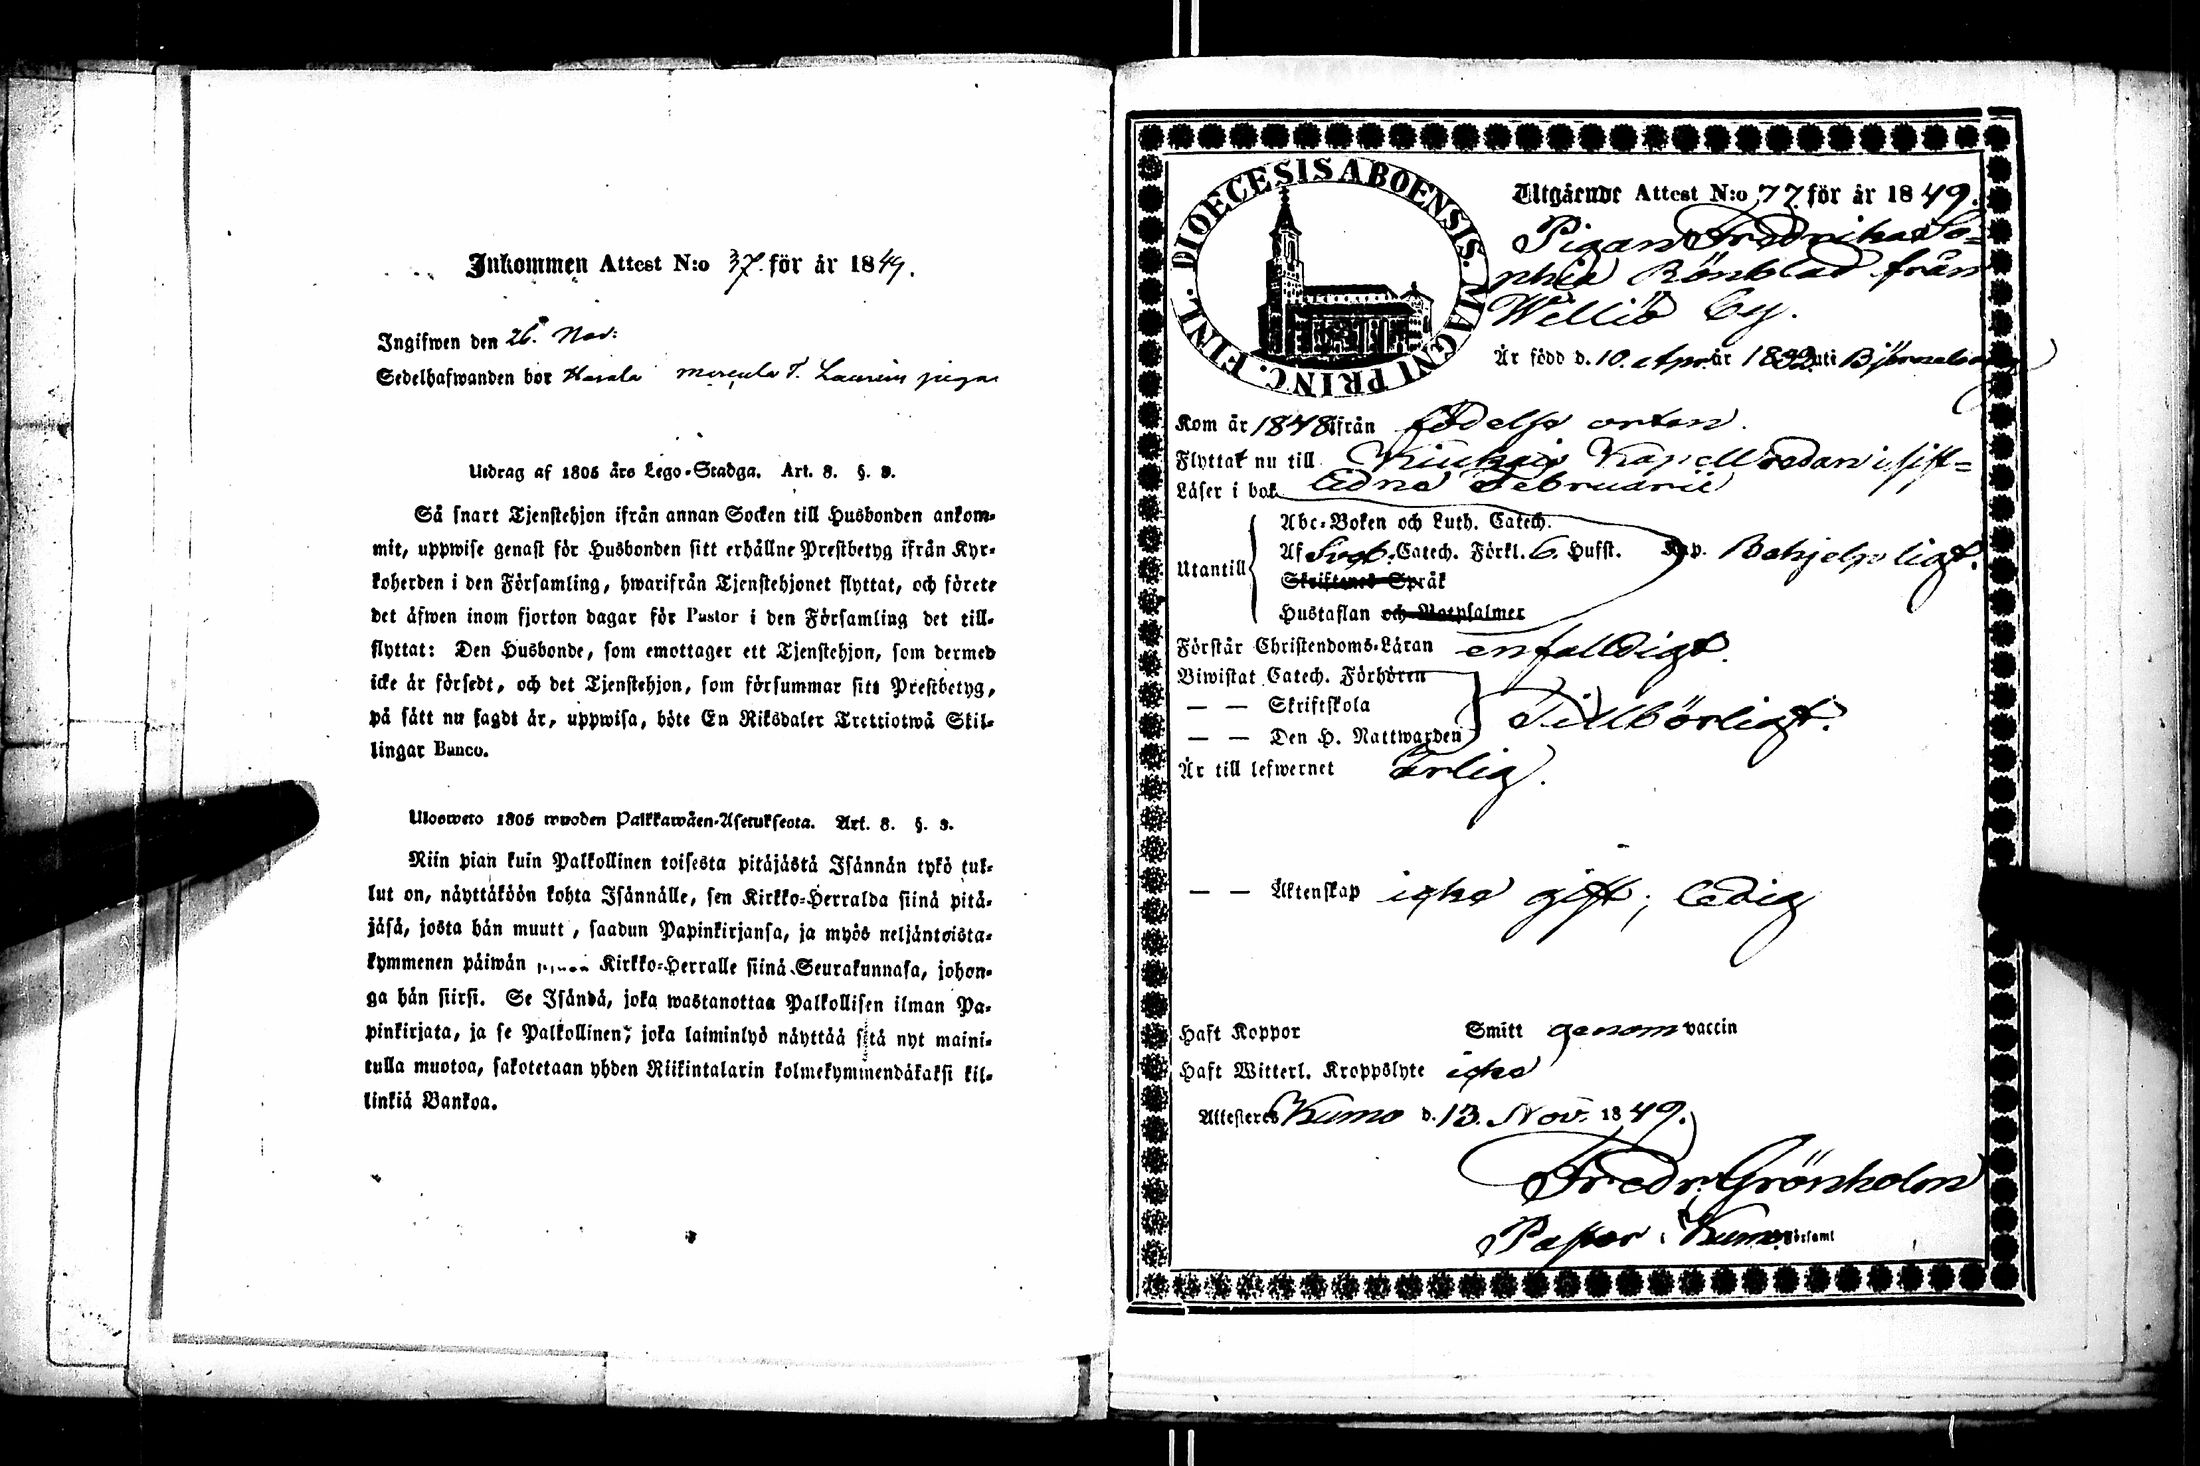 Inkommen Attest N:o 37. för år 1849.
Ingifwen den 26. Nov:
Sedelhafwanden bor Harola T. Laurius pigan
Utdrag af 1805 års Lego-Stadga. Art. 8. §. 3.
Så snart Tjenstehjon ifrån annan Socken till Husbonden ankom-
mit, uppwise genast för Husbonden sitt erhållne Prestbetyg ifrån Kyr-
koherden i den Församling, hwarifrån Tjenstehjonet flyttat, och förete
det äfwen inom fjorton dagar för Pastor i den Församling det till-
flyttat: Den Husbonde, som emottager ett Tjenstehjon, som dermed
icke är försedt, och det Tjenstehjon, som försummar sitt Prestbetyg,
på sätt nu sagdt är, uppwisa, böte En Riksdaler Trettiotwå Skil-
lingar Banco.
Ulosweto 1805 wuoden Palkkawäen-Asetuksesta. Art. 8. §. 3.
Niin pian kuin Palkollinen toisesta pitäjästä Isännän tykö tul-
lut on, näyttäköön kohta Isännälle, sen Kirkko-Herralda siinä pitä-
jäsä, josta hän muutt, saadun Papinkirjansa, ja myös neljäntoista-
kymmenen päiwän Kirkko-Herralle siinä Seurakunnasa, johon-
ga hän siirsi. Se Isändä, joka wastanottaa Palkollisen ilman Pa-
pinkirjata, ja se Palkollinen, joka laiminlyö näyttää sitä nyt maini-
tulla muotoa, sakotetaan yhden Riikintalarin kolmekymmendäkaksi kil-
linkiä Bankoa.
DIOECESIS ABOENSIS. MAGNI PRINC. FINL.
Utgående Attest N:o 77. för år 1849.
Pigan Fredrika So-
phia Rönblad från
Wellis by.
Är född d. 10. Apr. år 1832 uti Björneborg
Kom år 1848 ifrån födelse orten.
Flyttat nu till Kiukais Kapell redan i sist-
Läser i bok lidne Februarii
Utantill
Abc-Boken och Luth. Catech.
Af Sveb. Catech. Förkl. 6. Hufst. Kap. Behjelpligt.
Skriftenes Språk
Hustaflan och Botpsalmer
Förstår Christendoms-Läran enfaldigt.
Biwistat Catech. Förhören
— — Skriftskola Tillbörligt.
— — Den H. Nattwarden
Är till lefwernet Ärlig.
— — Äktenskap icke gift; ledig
Haft Koppor Smitt genom vaccin
Haft Witterl. Kroppslyte icke
Attesteres Kumo d. 13. Nov. 1849.
Fredr. Grönholm
Past. i Kumo Församl